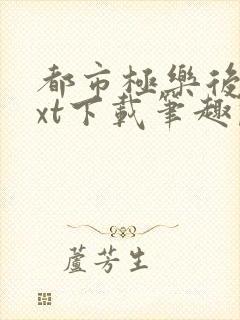 都市極樂後
xt下載筆趣
蘆芳生